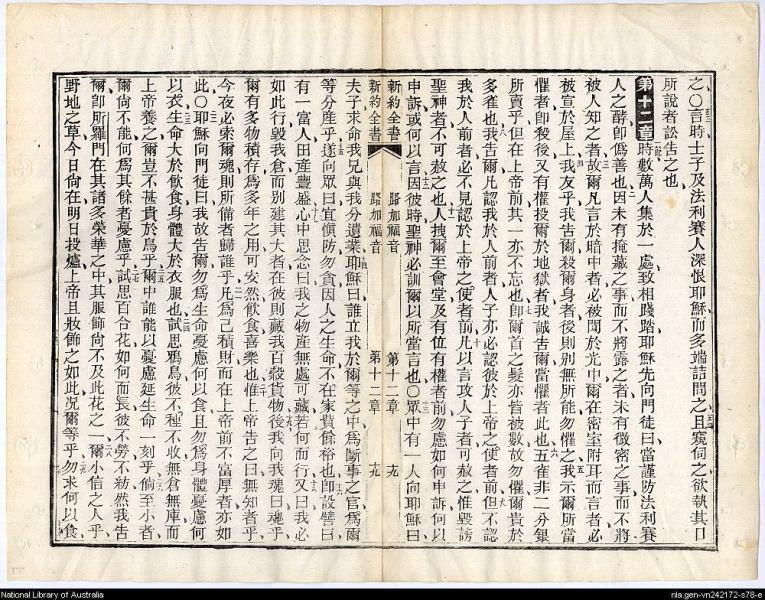 之〇言時士子及法利賽人深恨耶穌而多端詰問之且窺伺之欲執其口
所說者訟告之也
第十二章 時數萬人集於一處致相踐踏耶穌先向門徒曰當謹防法利賽
人之酵卽僞善也因未有掩藏之事而不將露之者未有微密之事而不將
被人知之者故爾凡言於暗中者必被聞於光中爾在密室附耳而言者必
被宣於屋上我友乎我告爾殺爾身者後則別無所能勿懼之我示爾所當
懼者卽殺後又有權投爾於地獄者我誠告爾當懼者此也五雀非二分銀
所賣乎但在上帝前其一亦不忘也卽爾首之髮亦皆被數故勿懼爾貴於
多雀也我告爾凡認我於人前者人子亦必認彼於上帝之使者前但不認
我於人前者必不見認於上帝之使者前凡以言攻人子者可赦之惟毀謗
聖神者不可赦之也人拽爾至會堂及有位有權者前勿慮如何申訴何以
申訴或何以言因彼時聖神必訓爾以所當言也〇眾中有一人向耶穌曰
新約全書 路加福音 第十二章 十九
新約全書 路加福音 第十二章 十九
夫子求命我兄與我分遺業耶穌曰誰立我於爾等之中爲斷事之官爲爾
等分產乎遂向眾曰宜愼防勿貪因人之生命不在家貲餘裕也卽設譬曰
有一富人田產豐盛心中思念曰我之物產無處可藏若何而行又曰我必
如此行毀我倉而別建其大者在彼則藏我百穀貨物後向我魂曰魂乎
爾有多物積存爲多年之用可安然飲食喜樂也惟上帝告之曰無知者乎
今夜必索爾魂則所備者歸誰乎凡爲己積財而在上帝前不富厚者亦如
此〇耶穌向門徒曰我故告爾勿爲生命憂慮何以食且勿爲身體憂慮何
以衣生命大於飲食身體大於衣服也試思鴉鳥彼不種不收無倉無庫而
上帝養之爾豈不甚貴於鳥乎爾中誰能以憂慮延生命一刻乎倘至小者
爾尙不能何爲其餘者憂慮乎試思百合花如何而長彼不勞不紡然我告
爾卽所羅門在其諸多榮華之中其服飾尙不及此花之一爾小信之人乎
野地之草今日尙在明日投爐上帝且妝飾之如此况爾等乎勿求何以食
National Library of Australia
nla.gen-vn242172-s78-e